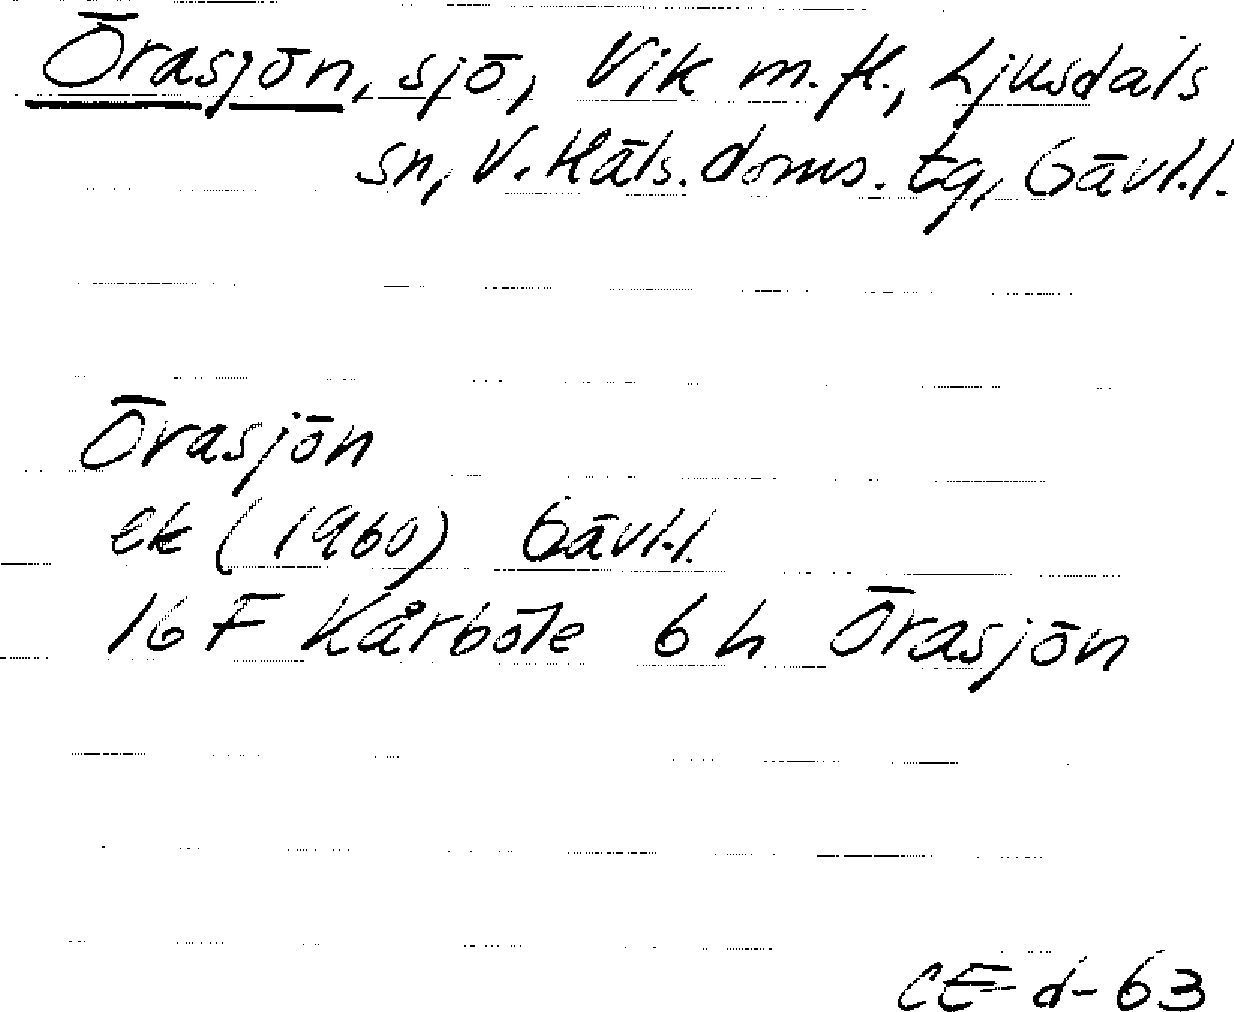 Örasjön, sjö, Vik m.fl., Ljusdals
sn, V. Häls. doms. tg, Gävl.l.
Örasjön
ek (1960) Gävl.l.
16 F Kårböle 6 h Örasjön
CE d-63